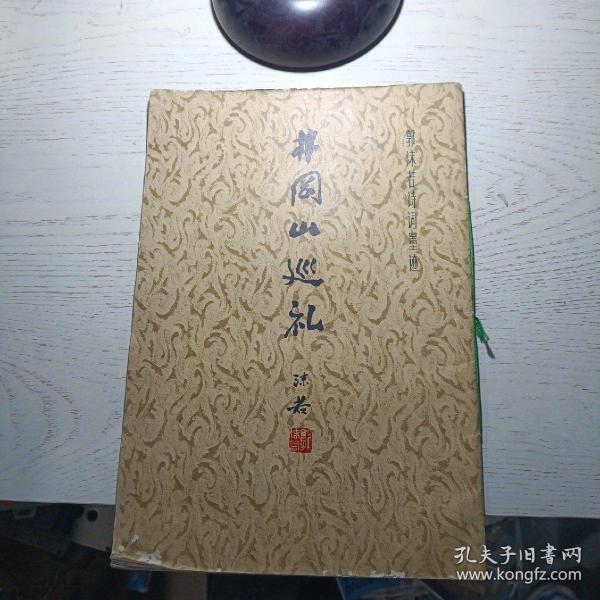 郭沫若诗词墨迹
井岡山巡礼
沫若
孔夫子旧書网
www.kongfz.com